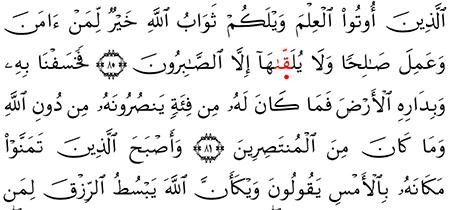 ٱلَّذِينَ أُوتُوا۟ ٱلْعِلْمَ وَيْلَكُمْ ثَوَابُ ٱللَّهِ خَيْرٌ لِّمَنْ ءَامَنَ
وَعَمِلَ صَـٰلِحًا وَلَا يُلَقَّىٰهَآ إِلَّا ٱلصَّـٰبِرُونَ ٨٠ فَخَسَفْنَا بِهِۦ
وَبِدَارِهِ ٱلْأَرْضَ فَمَا كَانَ لَهُۥ مِن فِئَةٍ يَنصُرُونَهُۥ مِن دُونِ ٱللَّهِ
وَمَا كَانَ مِنَ ٱلْمُنتَصِرِينَ ٨١ وَأَصْبَحَ ٱلَّذِينَ تَمَنَّوْا۟
مَكَانَهُۥ بِٱلْأَمْسِ يَقُولُونَ وَيْكَأَنَّ ٱللَّهَ يَبْسُطُ ٱلرِّزْقَ لِمَن